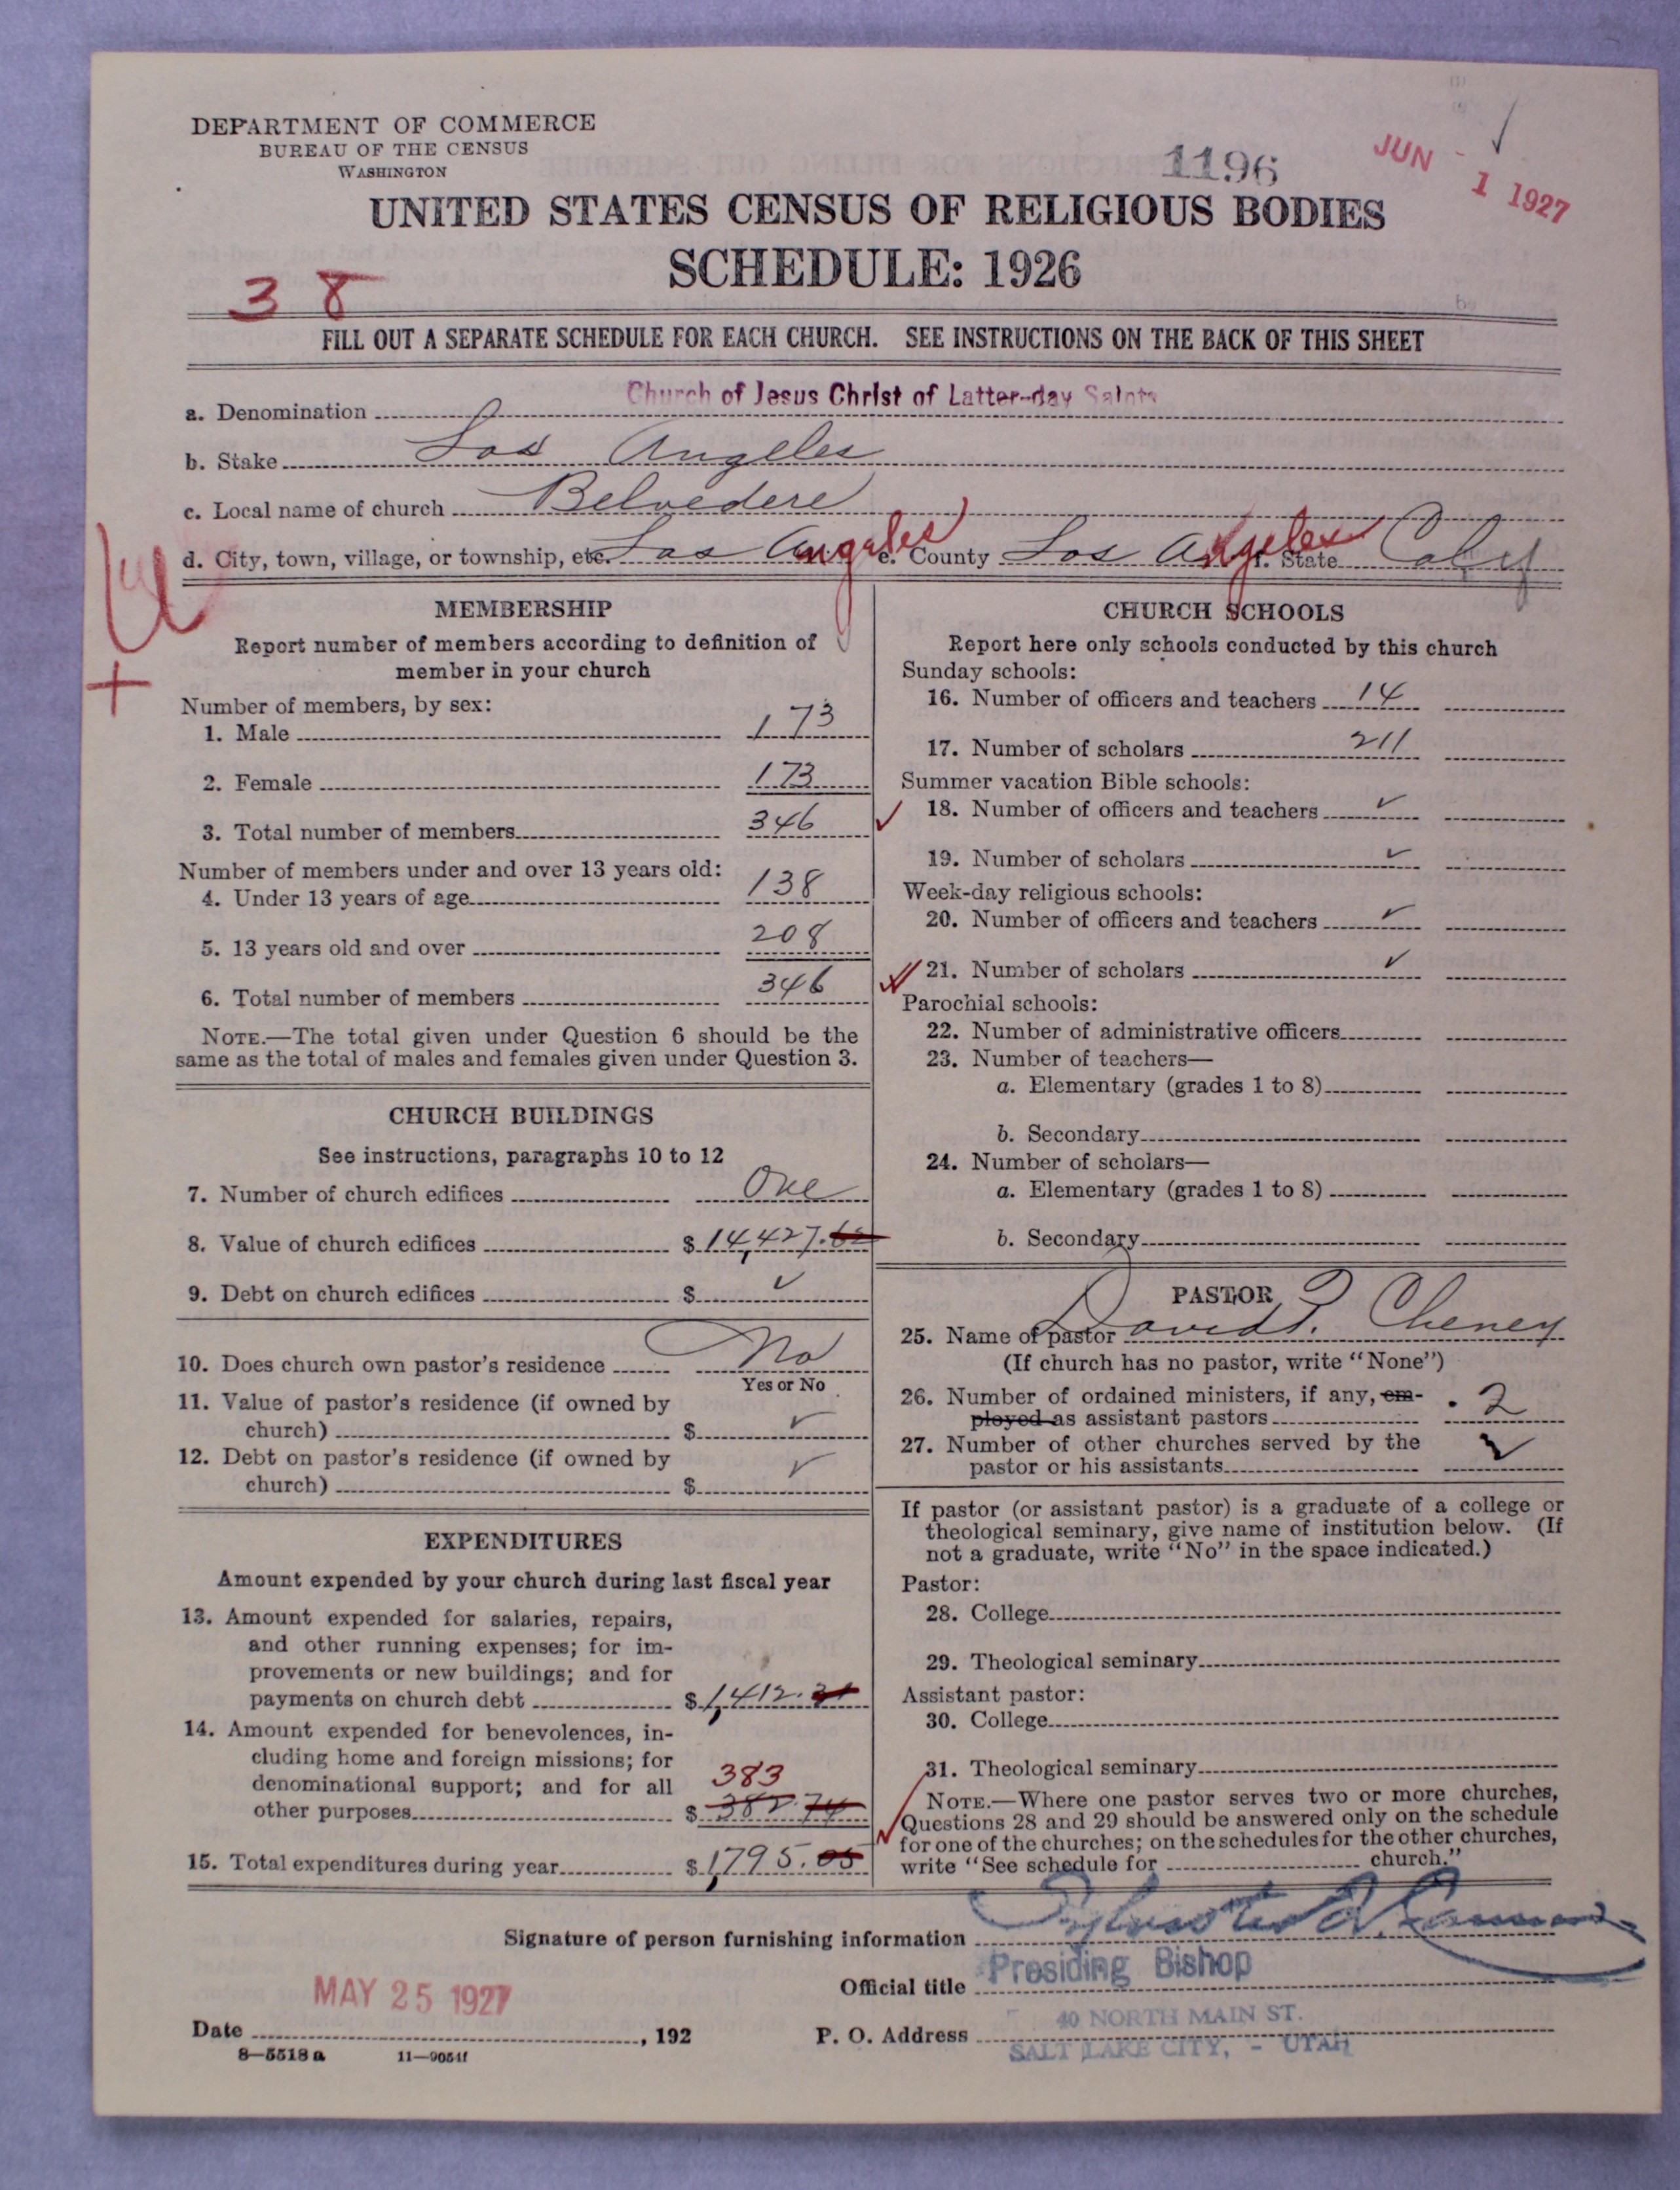 DEPARTMENT OF COMMERCE
BUREAU OF THE CENSUS
WASHINGTON
1196
JUN - 1 1927
UNITED STATES CENSUS OF RELIGIOUS BODIES
SCHEDULE: 1926
3 8
FILL OUT A SEPARATE SCHEDULE FOR EACH CHURCH. SEE INSTRUCTIONS ON THE BACK OF THIS SHEET
a. Denomination Church of Jesus Christ of Latter-day Saints
b. Stake Los Angeles
c. Local name of church Belvedere
d. City, town, village, or township, etc. Los Angeles e. County Los Angeles f. State Calif
MEMBERSHIP
Report number of members according to definition of
member in your church
Number of members, by sex:
1. Male 173
2. Female 173
3. Total number of members 346
Number of members under and over 13 years old:
4. Under 13 years of age 138
5. 13 years old and over 208
6. Total number of members 346
NOTE.—The total given under Question 6 should be the
same as the total of males and females given under Question 3.
CHURCH BUILDINGS
See instructions, paragraphs 10 to 12
7. Number of church edifices One
8. Value of church edifices $ 14,427.62
9. Debt on church edifices $ ✓
10. Does church own pastor's residence No
Yes or No
11. Value of pastor's residence (if owned by
church) $ ✓
12. Debt on pastor's residence (if owned by
church) $ ✓
EXPENDITURES
Amount expended by your church during last fiscal year
13. Amount expended for salaries, repairs,
and other running expenses; for im-
provements or new buildings; and for
payments on church debt $ 1,412.31
14. Amount expended for benevolences, in-
cluding home and foreign missions; for
denominational support; and for all 383
other purposes $ 382.74
15. Total expenditures during year $ 1,795.05
CHURCH SCHOOLS
Report here only schools conducted by this church
Sunday schools:
16. Number of officers and teachers 14
17. Number of scholars 211
Summer vacation Bible schools:
✓ 18. Number of officers and teachers ✓
19. Number of scholars ✓
Week-day religious schools:
20. Number of officers and teachers ✓
21. Number of scholars ✓
Parochial schools:
22. Number of administrative officers
23. Number of teachers—
a. Elementary (grades 1 to 8)
b. Secondary
24. Number of scholars—
a. Elementary (grades 1 to 8)
b. Secondary
PASTOR
25. Name of pastor David P. Cheney
(If church has no pastor, write "None")
26. Number of ordained ministers, if any, em-
ployed as assistant pastors 2
27. Number of other churches served by the
pastor or his assistants ✓
If pastor (or assistant pastor) is a graduate of a college or
theological seminary, give name of institution below. (If
not a graduate, write "No" in the space indicated.)
Pastor:
28. College
29. Theological seminary
Assistant pastor:
30. College
31. Theological seminary
NOTE.—Where one pastor serves two or more churches,
Questions 28 and 29 should be answered only on the schedule
for one of the churches; on the schedules for the other churches,
write "See schedule for church."
Signature of person furnishing information Sylvester Q. Cannon
Official title Presiding Bishop
MAY 25 1927
Date , 192
P. O. Address 40 NORTH MAIN ST.
SALT LAKE CITY, - UTAH
8—5518 a 11—9051f